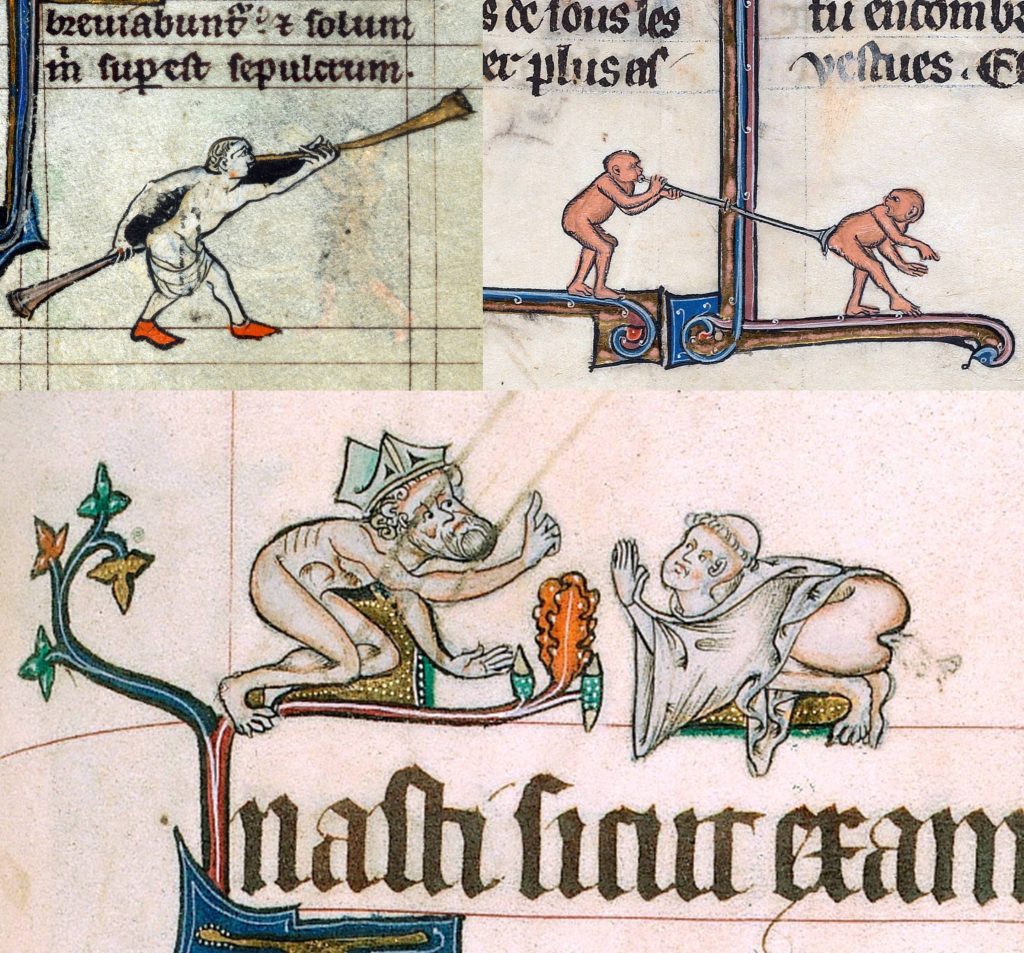 breuiabunt᷑ : ⁊ solum
supest sepulcrum.
s de tous les
er plus as
tu encombr
vestues. E
nasti sicut exam